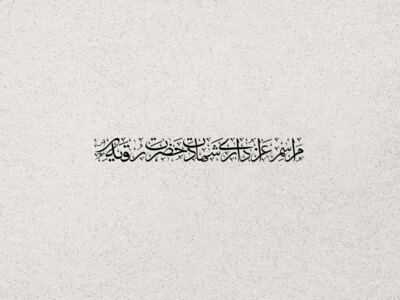 مراسم عزاداری شهادت حضرت رقیه